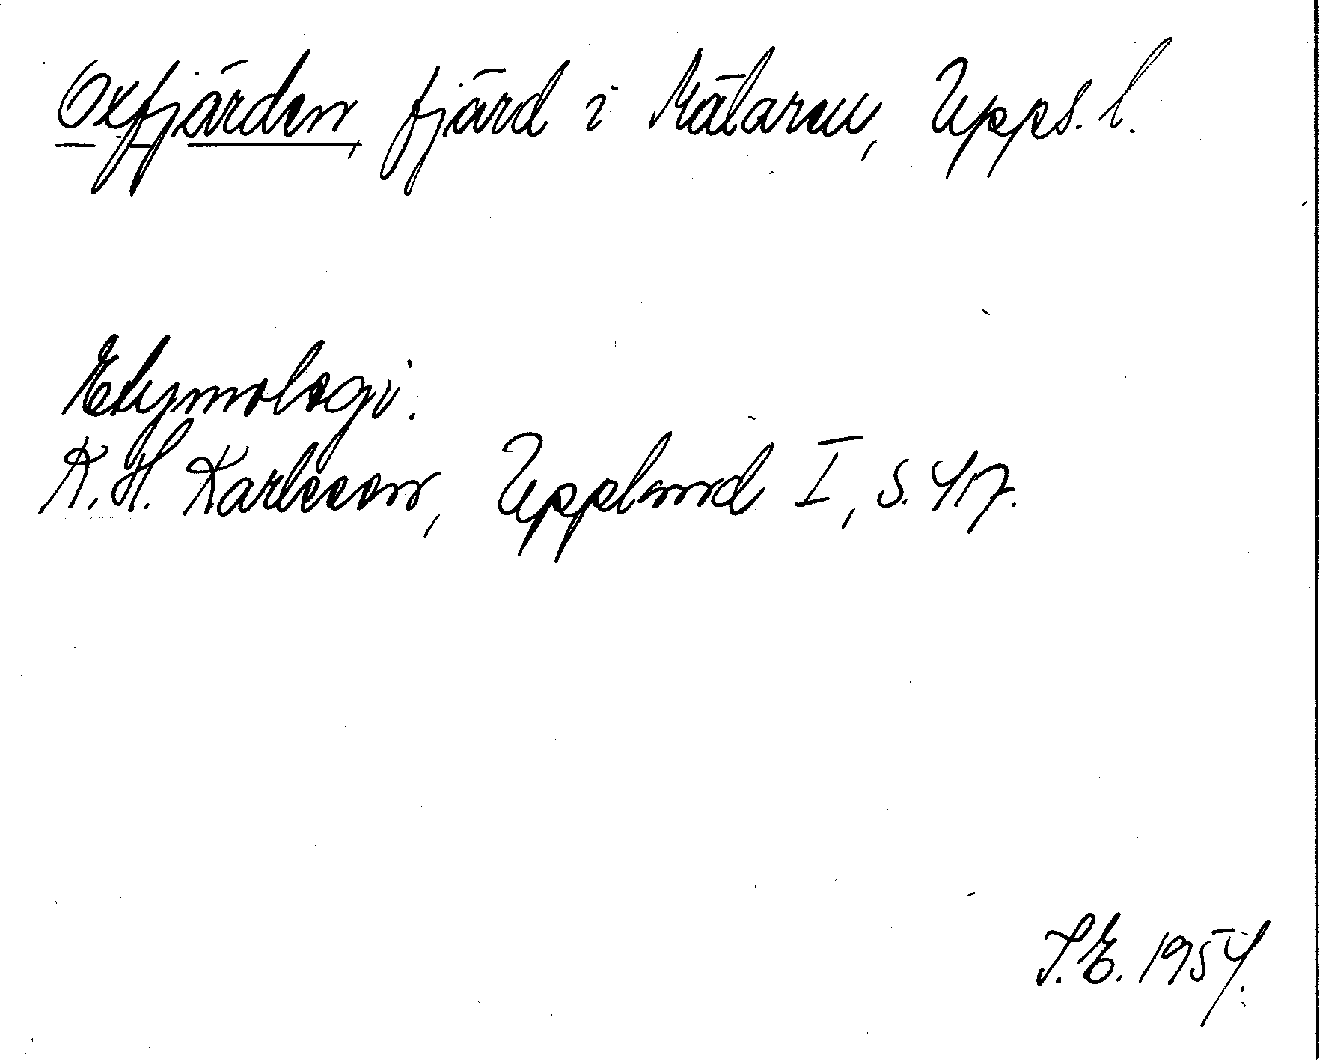 Oxfjärden, fjärd i Mälaren, Upps. l.
Etymologi.
K. H. Karlsson, Uppland I, s. 417.
S. E. 1954.